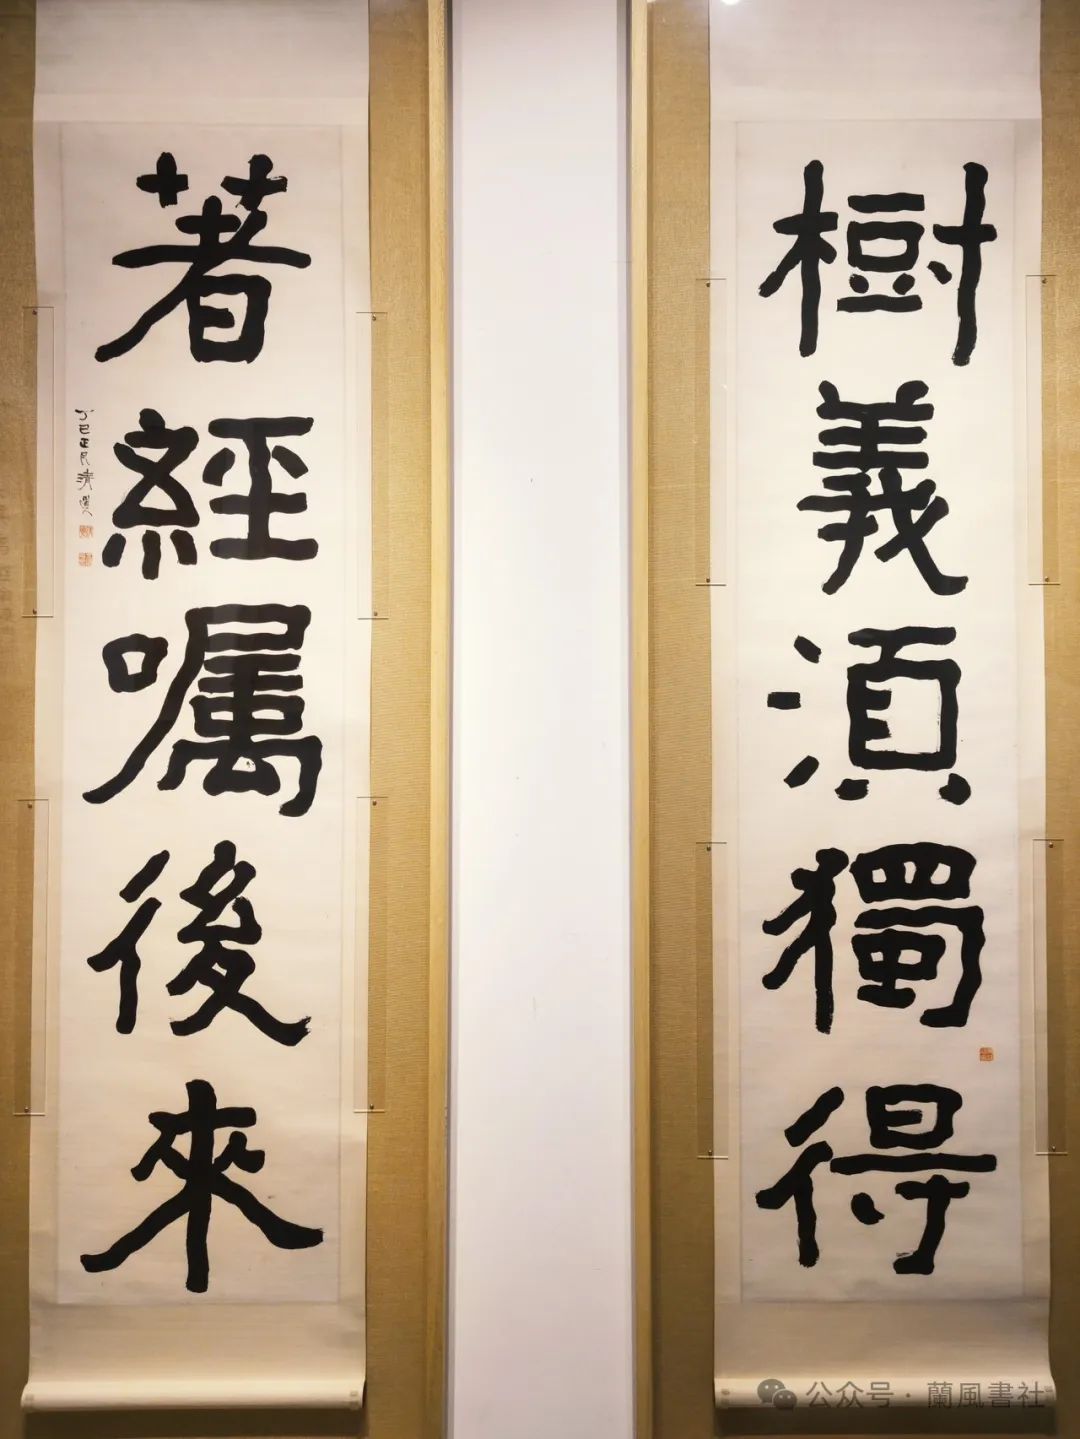 樹義須獨得
著經囑後來
丁巳正月清道人
公众号·蘭風書社